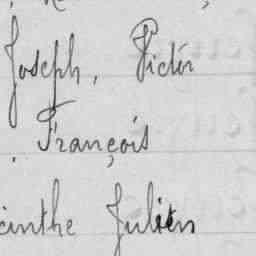 Joseph, Victor
François
cinthe Julien